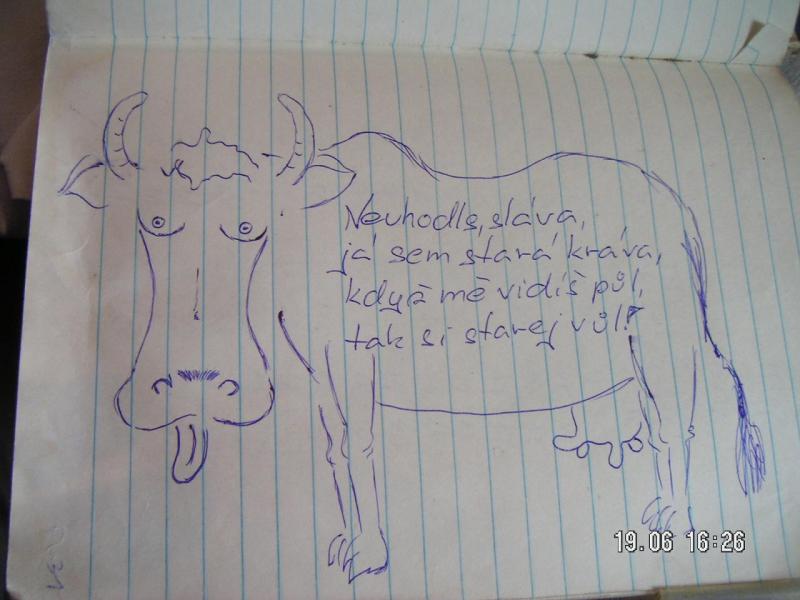 Neuhodls, sláva,
já sem stará kráva,
když mě vidíš půl,
tak si starej vůl!
19.06 16:26